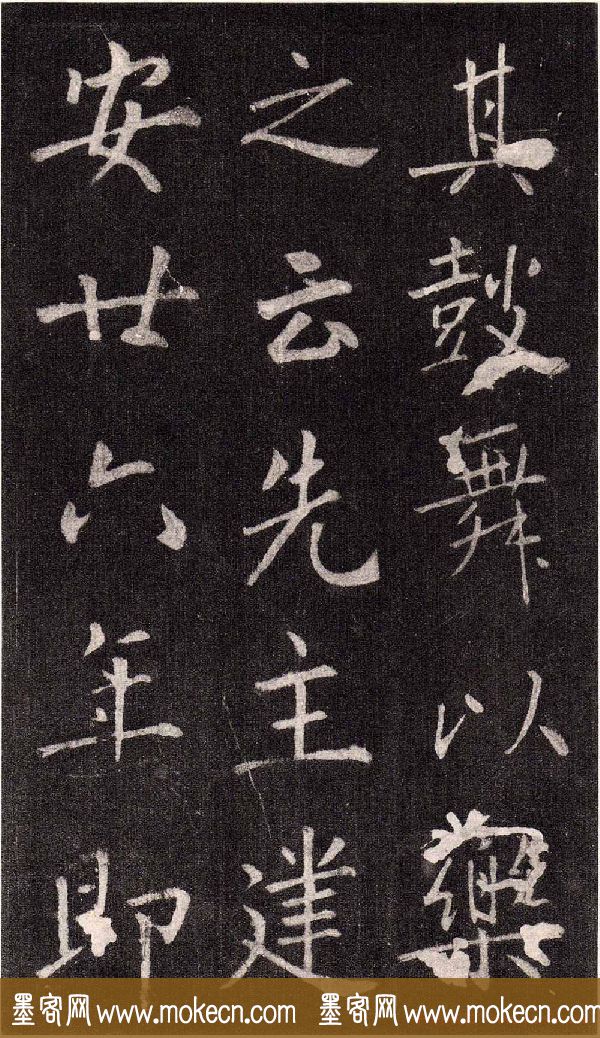 其鼓舞以樂
之云先主建
安廿六年即
墨客网 www.mokecn.com 墨客网 www.mokecn.com